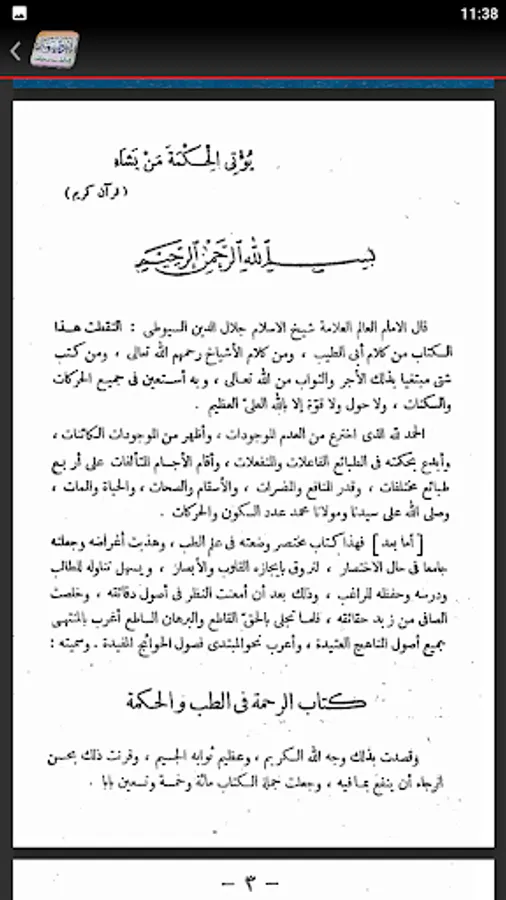 11:38
يُؤْتِى الْحِكْمَةَ مَنْ يَشَاءُ
(قرآن كريم)
بسم الله الرحمن الرحيم
قال الامام العالم العلامة شيخ الاسلام جلال الدين السيوطى : التقطت هذا
الكتاب من كلام أبى الطيب ، ومن كلام الأشياخ رحمهم الله تعالى ، ومن كتب
شتى مبتغيا بذلك الأجر والثواب من الله تعالى ، وبه أستعين فى جميع الحركات
والسكنات ، ولا حول ولا قوّة إلا بالله العلىّ العظيم .
الحمد لله الذى اخترع من العدم الموجودات ، وأظهر من الموجودات الكائنات ،
وأبدع بحكمته فى الطبائع الفاعلات والمنفعلات ، وأقام الأجسام المتألفات على أربع
طبائع مختلفات ، وقدر المنافع والمضرات ، والأسقام والصحات ، والحياة والممات ،
وصلى الله على سيدنا ومولانا محمد عدد السكون والحركات .
[أما بعد] فهذا كتاب مختصر وضعته فى علم الطب ، وهذبت أغراضه وجعلته
جامعا فى حال الاختصار ، لتروق بإيجازه القلوب والأبصار ، ويسهل تناوله للطالب
ودرسه وحفظه للراغب ، وذلك بعد أن أمعنت النظر فى أصول دقائقه ، وخلصت
الصافى من زبد حقائقه ، فلما تجلى بالحقّ القاطع والبرهان الساطع أغرب بالمنتهى
بجميع أصول المناهج العتيدة ، وأعرب نحو المبتدى فصول الحوائج المفيدة . وسميته :
كتاب الرحمة فى الطب والحكمة
وقصدت بذلك وجه الله الكريم ، وعظيم ثوابه الجسيم ، وقرنت ذلك بحسن
الرجاء أن ينفع بما فيه ، وجعلت جملة الكتاب مائة وخمسة وتسعين بابا .
– ٣ –